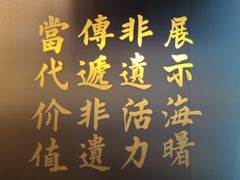 展示海曙
非遺活力
傳遞非遺
當代价值